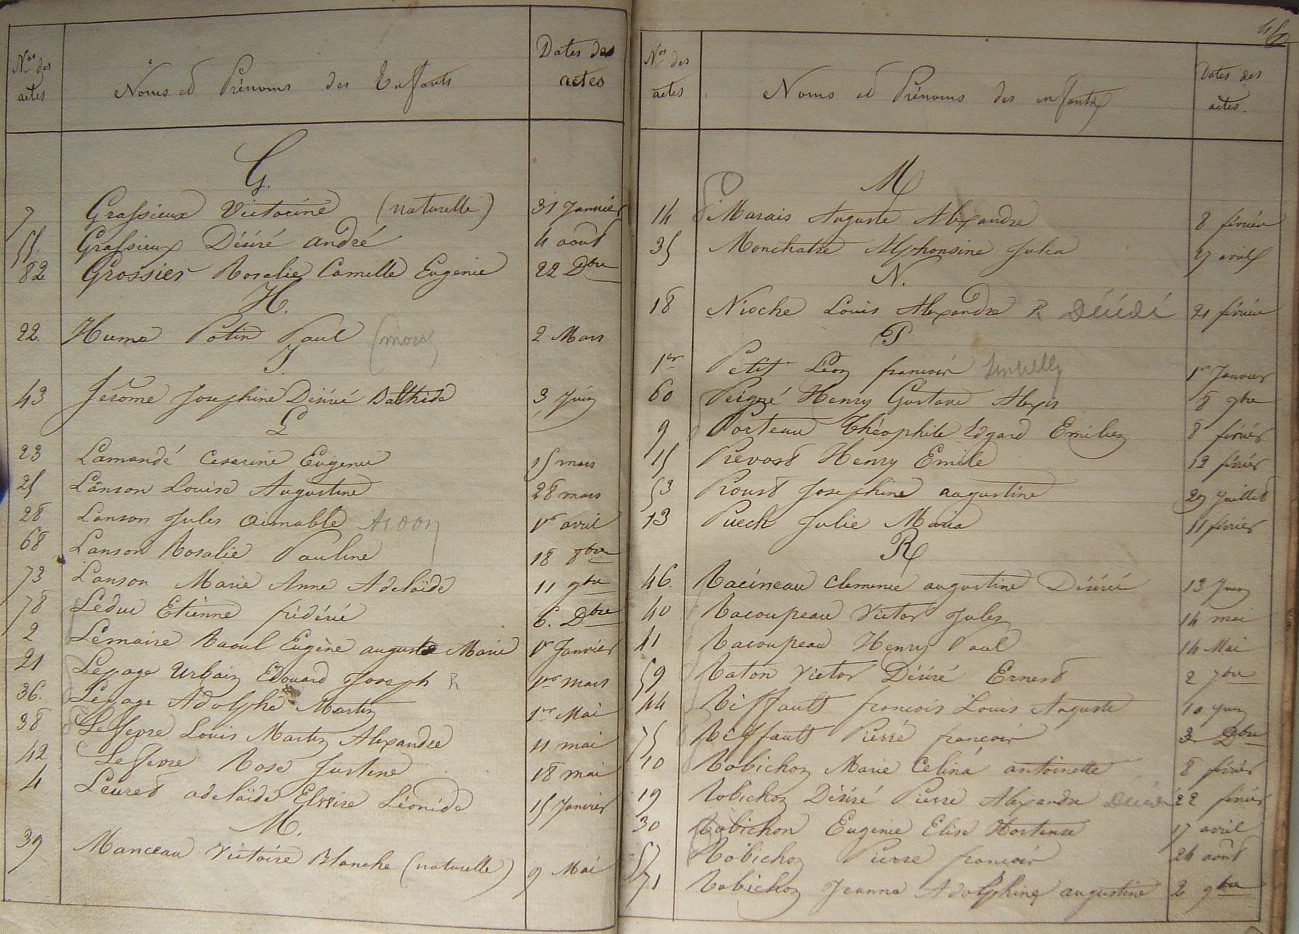 Nos des actes Noms et Prénoms des Enfants Dates des actes
G.
7 Grassieux Victorine (naturelle) 31 Janvier
55 Grassieux Désiré andré 4 août
82 Grossier Rosalie Camille Eugenie 22 Dbre
H.
22 Hume Potin Paul 2 Mars
J
43 Jérôme Josephine Désiré Bathilde 3 Juin
L
23 Lamandé Cesarine Eugenie 15 mars
25 Lanson Louise Augustine 28 mars
28 Lanson Jules aimable 1er avril
68 Lanson Rosalie Pauline 18 8bre
73 Lanson Marie Anne Adelaïde 11 9bre
78 Leduc Etienne frédéric 6. Dbre
2 Lemaire Raoul Eugène auguste Marie 1er Janvier
21 Lepage Urbain Edouard Joseph R 1er mars
36. Lepage Adolphe Martin 1er Mai
38 Lefevre Louis Martin Alexandre 11 mai
42 Lefevre Rose Justine 18 mai
4 Leuret adelaïde Elvire Léonide 15 Janvier
M.
39 Manceau Victoire Blanche (naturelle) 9 Mai
46
Nos des actes Noms et Prénoms des enfants Dates des actes.
M
14 Marais Auguste Alexandre 8 février
35 Monchatre Alphonsine Julia 27 avril
N.
18 Nioche Louis Alexandre R Décédé 21 février
P
1er Petit Léon françois 1er Janvier
60 Peigné Henry Gustave Alexis 8 7bre
9 Porteau Théophile Edgard Emilien 8 février
15 Prevost Henry Emile 12 février
53 Proust Josephine augustine 29 Juillet
13 Pueck Julie Maria 11 février
R
46. Racineau clemence augustine Désirée 13 Juin
40 Racoupeau Victor Jules 14 mai
41 Racoupeau Henry Paul 14 Mai
59 Raton Victor Désiré Ernest 2 7bre
44 Riffault françois Louis Auguste 10 Juin
75 Riffault Pierre françois 3 Dbre
10 Robichon Marie Célina antoinette 8 février
19 Robichon Désiré Pierre Alexandre Décédé 22 février
30 Robichon Eugenie Elise Hortense 17 avril
57 Robichon Pierre françois 24 août
71 Robichon Jeanne Adolphine augustine 2 9bre